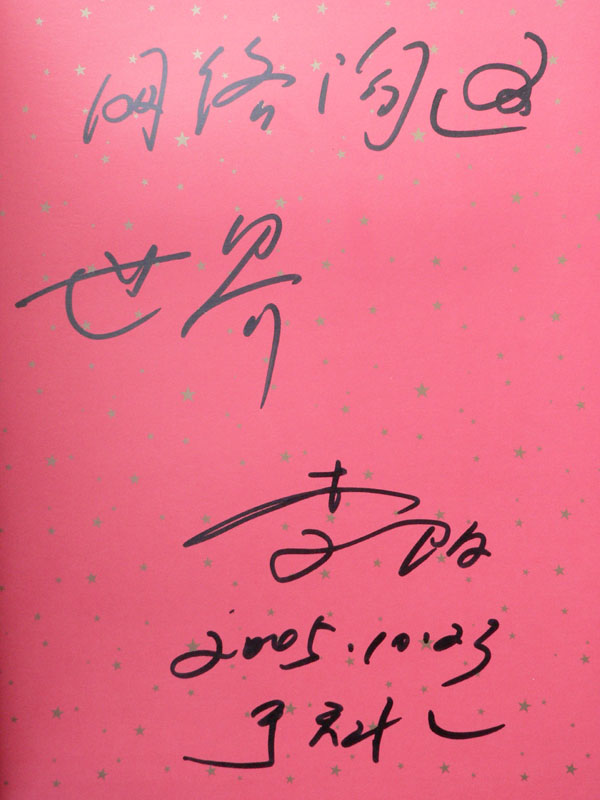 网络沟通
世界
李
2005.10.23
于